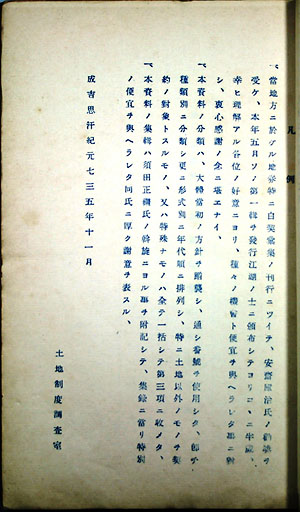 凡例
一、當地方ニ於ケル地券特ニ白契彙集ノ刊行ニツイテ、安齋庫治氏ノ勸獎ヲ
受ケ、本年五月ソノ第一輯ヲ發行江湖ノ士ニ頒布シテヨリココニ半歲、
幸ヒ理解アル各位ノ好意ニヨリ、種々ノ機會ト便宜ヲ與ヘラレタ事ニ對
シ、衷心感謝ノ念ニ堪エナイ、
一、本資料ノ分類ハ、大體當初ノ方針ヲ踏襲シ、通シ番號ヲ使用シタ、卽チ
種類別ニ分類シ更ニ形式別ニ年代順ニ排列シ、特ニ土地以外ノモノヲ契
約ノ對象トスルモノ、又ハ特殊ナモノハ全テ一括シテ第三項ニ收メタ、
一、本資料ノ集輯ハ須田正繼氏ノ斡旋ニヨル事ヲ附記シテ、集錄ニ當リ特別
ノ便宜ヲ與ヘラレタ同氏ニ厚ク謝意ヲ表スル、
成吉思汗紀元七三五年十一月
土地制度調査室